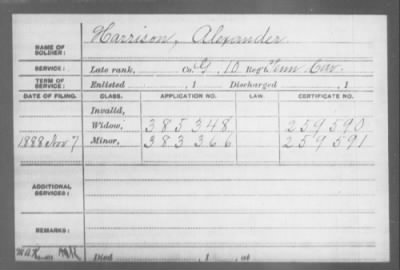 NAME OF SOLDIER: Harrison, Alexander
SERVICE: Late rank, Co. G, 10 Reg't Tenn Cav.
TERM OF SERVICE: Enlisted , 1 Discharged , 1
DATE OF FILING. CLASS. APPLICATION NO. LAW. CERTIFICATE NO.
Invalid,
Widow, 385348 259590
1888 Nov 7 Minor, 383366 259591
ADDITIONAL SERVICES:
REMARKS:
Died , 1 , at